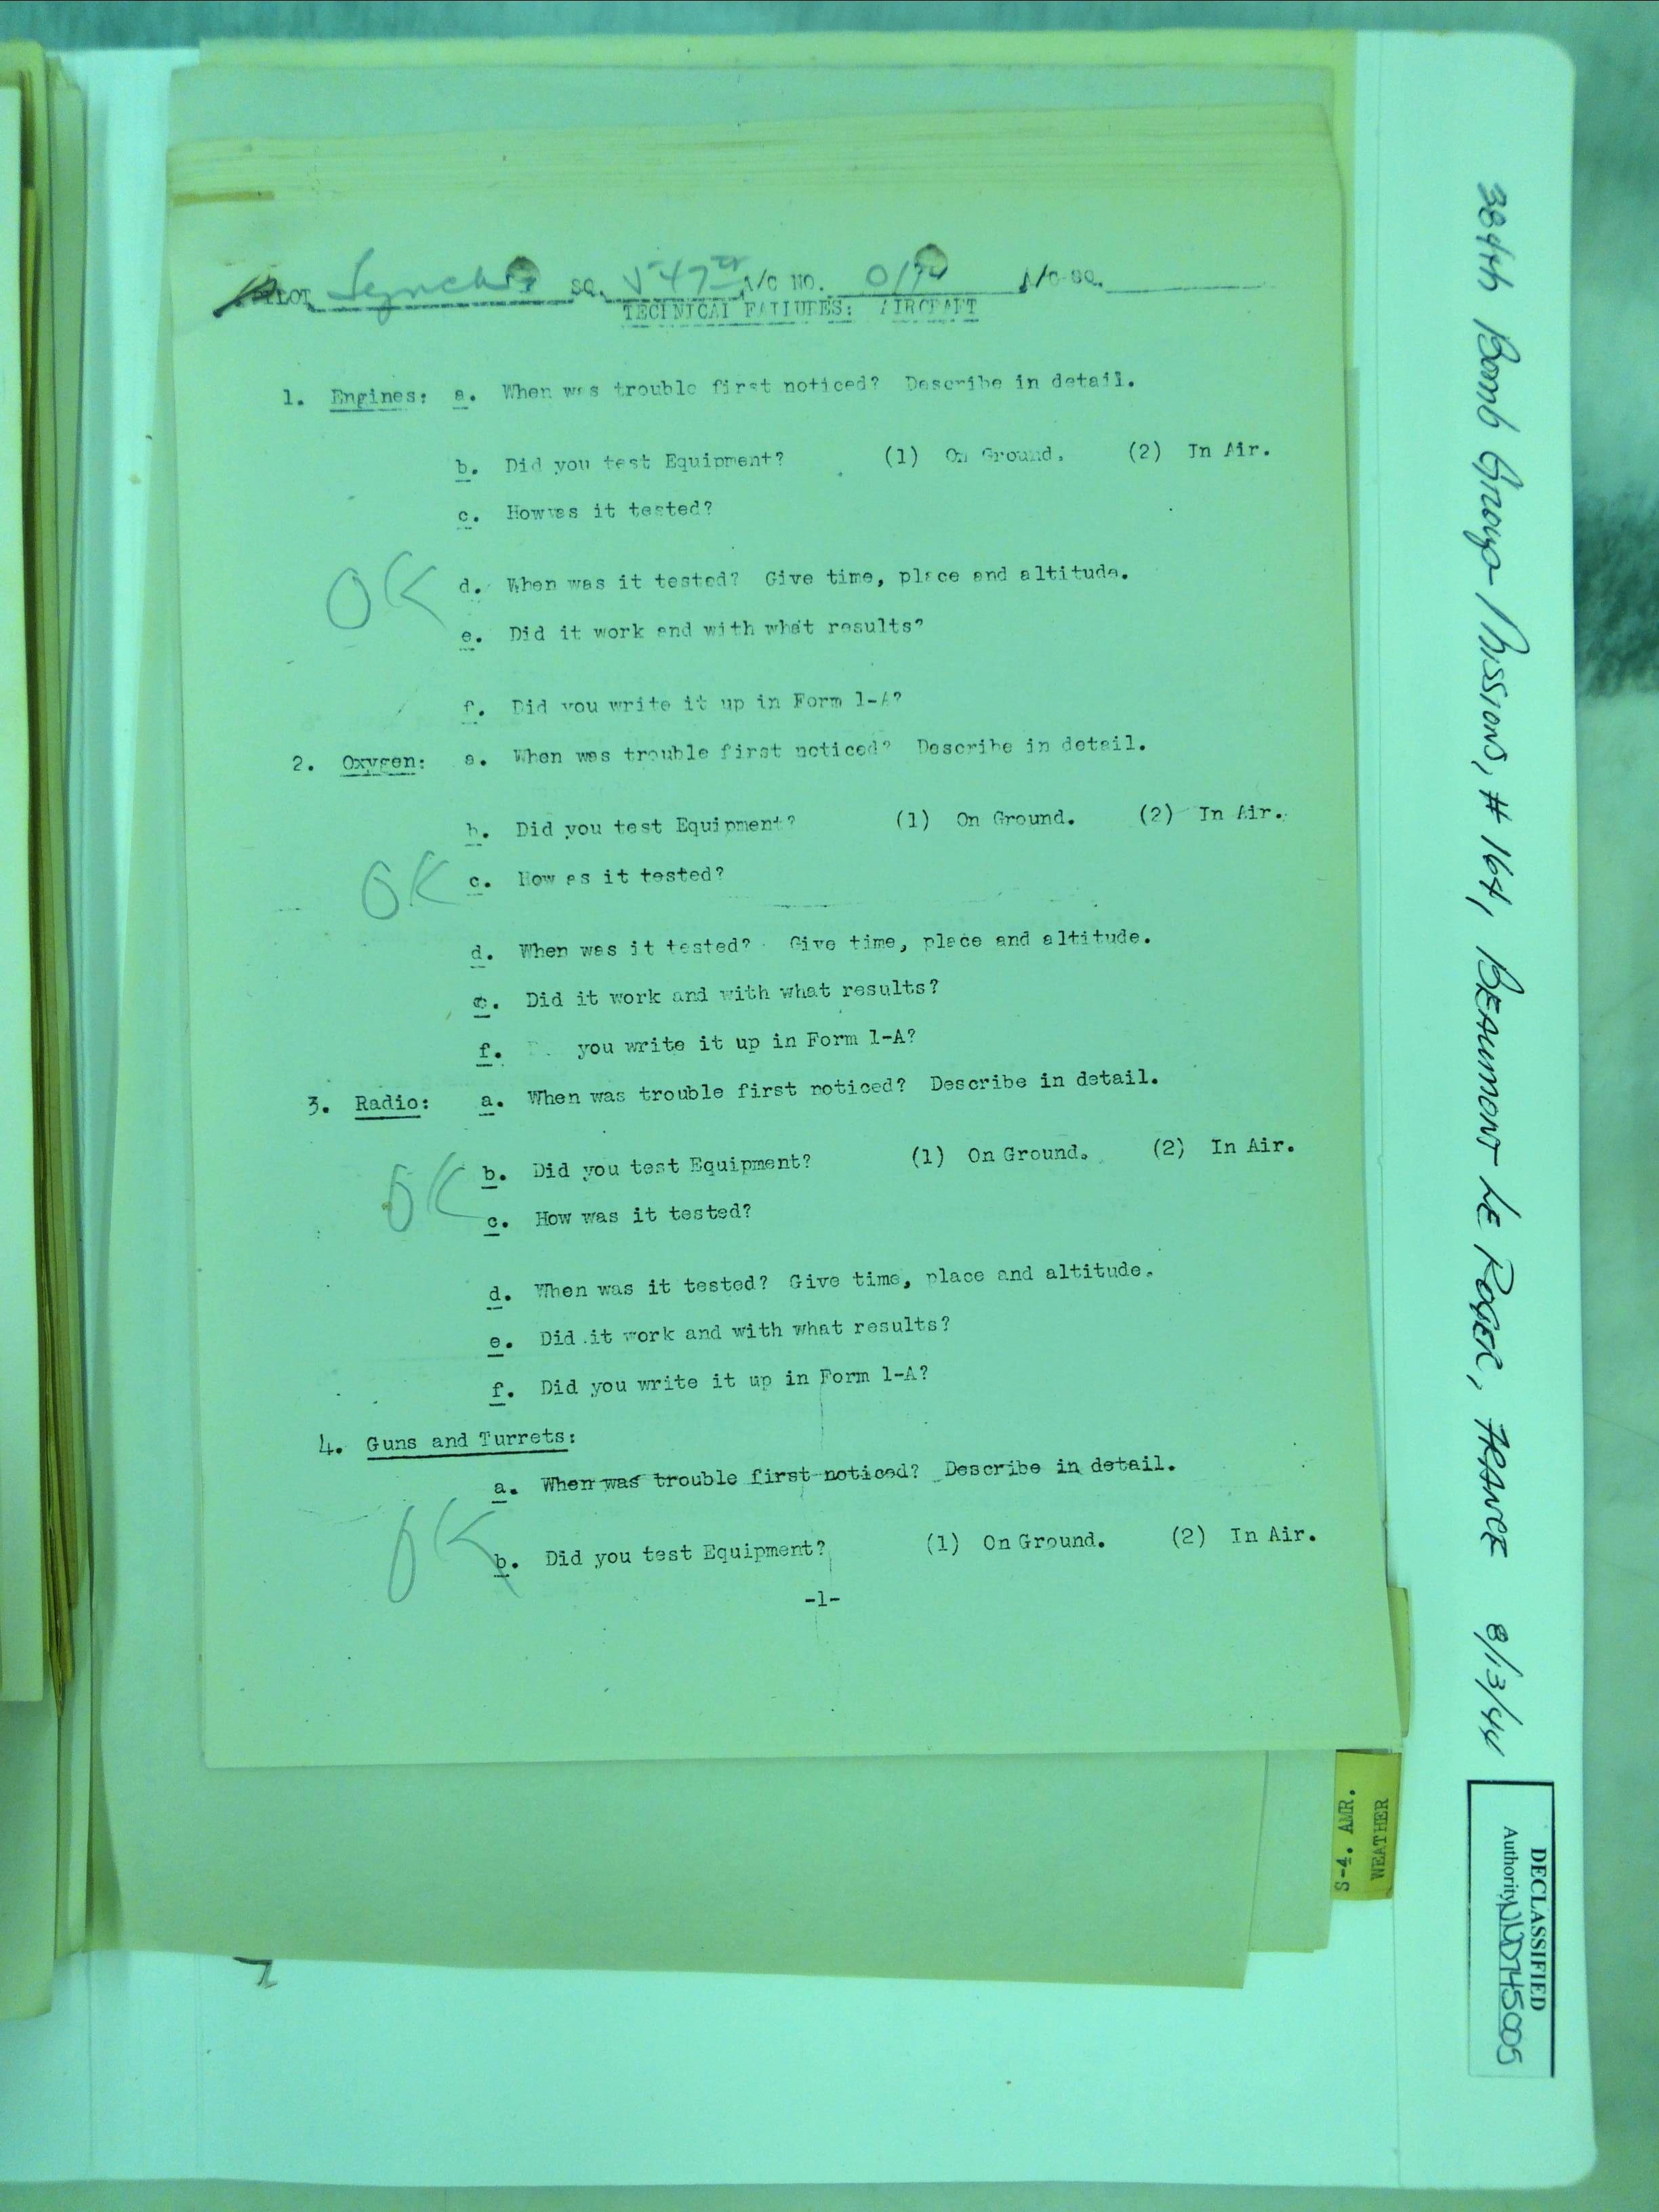 PILOT SQ. 547th A/C NO. A/C SQ.
TECHNICAL FAILURES: AIRCRAFT
1. Engines: a. When was trouble first noticed? Describe in detail.
b. Did you test Equipment? (1) On Ground. (2) In Air.
c. How was it tested?
OK
d. When was it tested? Give time, place and altitude.
e. Did it work and with what results?
f. Did you write it up in Form 1-A?
2. Oxygen: a. When was trouble first noticed? Describe in detail.
b. Did you test Equipment? (1) On Ground. (2) In Air.
OK c. How as it tested?
d. When was it tested? Give time, place and altitude.
e. Did it work and with what results?
f. you write it up in Form 1-A?
3. Radio: a. When was trouble first noticed? Describe in detail.
b. Did you test Equipment? (1) On Ground. (2) In Air.
OK
c. How was it tested?
d. When was it tested? Give time, place and altitude.
e. Did it work and with what results?
f. Did you write it up in Form 1-A?
4. Guns and Turrets:
a. When was trouble first noticed? Describe in detail.
OK
b. Did you test Equipment? (1) On Ground. (2) In Air.
-1-
S-4. AMR.
WEATHER
384th Bomb Group Missions, # 164, BEAUMONT LE ROGER, FRANCE 8/13/44
DECLASSIFIED
Authority NND745005